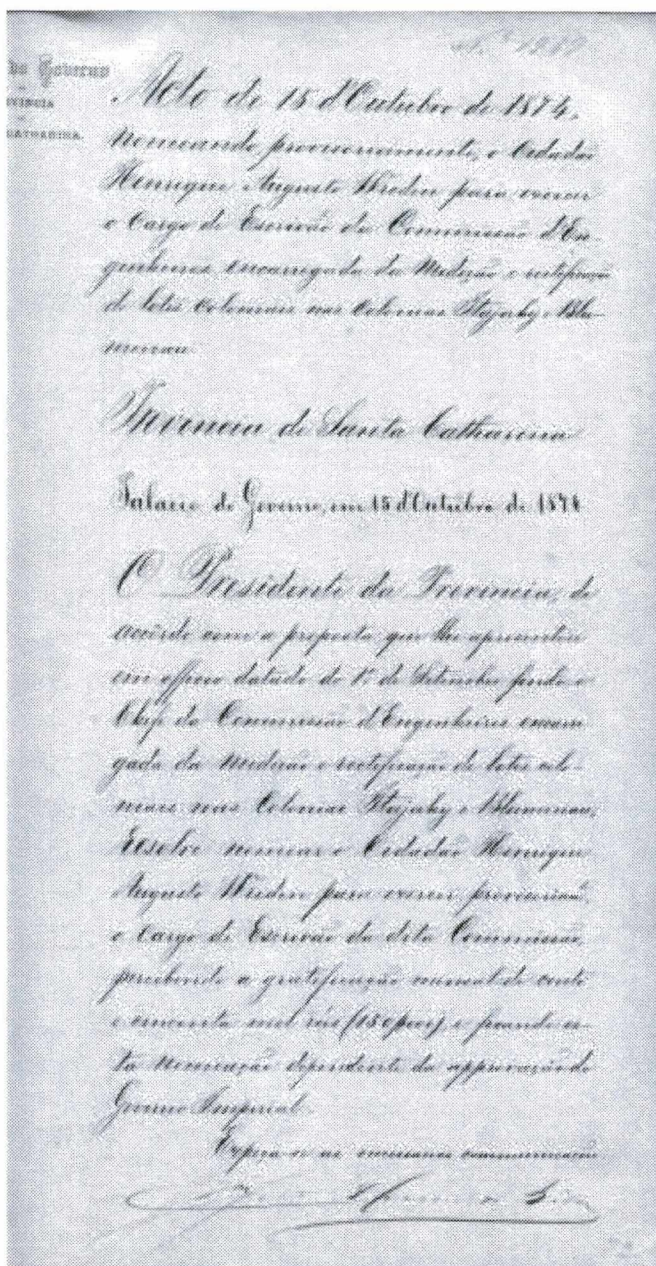 do Governo
Acto de 15 d'Outubro de 1874,
nomeando provisoriamente, o Cidadão
Henrique Augusto Wreden para exercer
o Cargo de Escrivão da Commissão d'En-
genheiros encarregada da Medição e rectificação
de lotes coloniaes nas Colonias Itajahy e Blu-
menau
Provincia de Santa Catharina
Palacio do Governo, em 15 d'Outubro de 1874
O Presidente da Provincia, de
accôrdo com a proposta que lhe apresentou
em officio datado do 1º de Setembro findo o
Chefe da Commissão d'Engenheiros encarre
gada da medição e rectificação de lotes colo-
niaes nas Colonias Itajahy e Blumenau,
Resolve nomear o Cidadão Henrique
Augusto Wreden para exercer, provisoriamᵉ,
o Cargo de Escrivão da dita Commissão,
percebendo a gratificação mensal de cento
e cincoenta mil réis (150$000) e ficando es-
ta nomeação dependente da approvação do
Governo Imperial.
Expeça-se as necessarias communicações